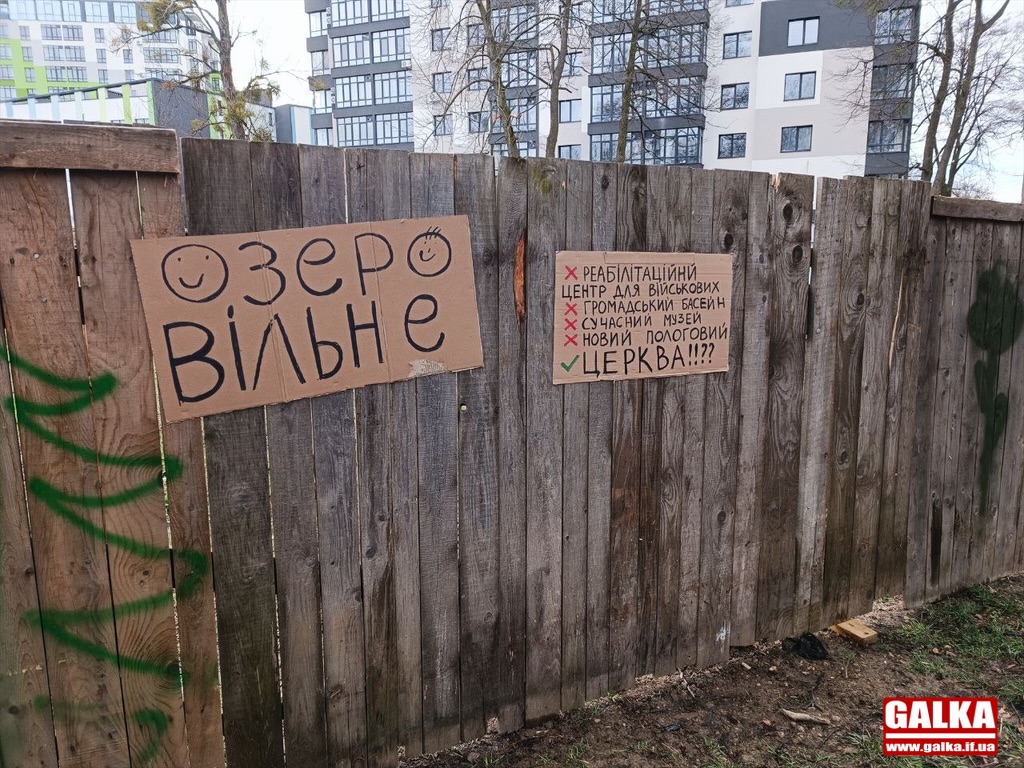 ОЗЕРО
ВІЛЬНЕ
❌ РЕАБІЛІТАЦІЙНИЙ
ЦЕНТР ДЛЯ ВІЙСЬКОВИХ
❌ ГРОМАДСЬКИЙ БАСЕЙН
❌ СУЧАСНИЙ МУЗЕЙ
❌ НОВИЙ ПОЛОГОВИЙ
✓ ЦЕРКВА!!??
GALKA
www.galka.if.ua